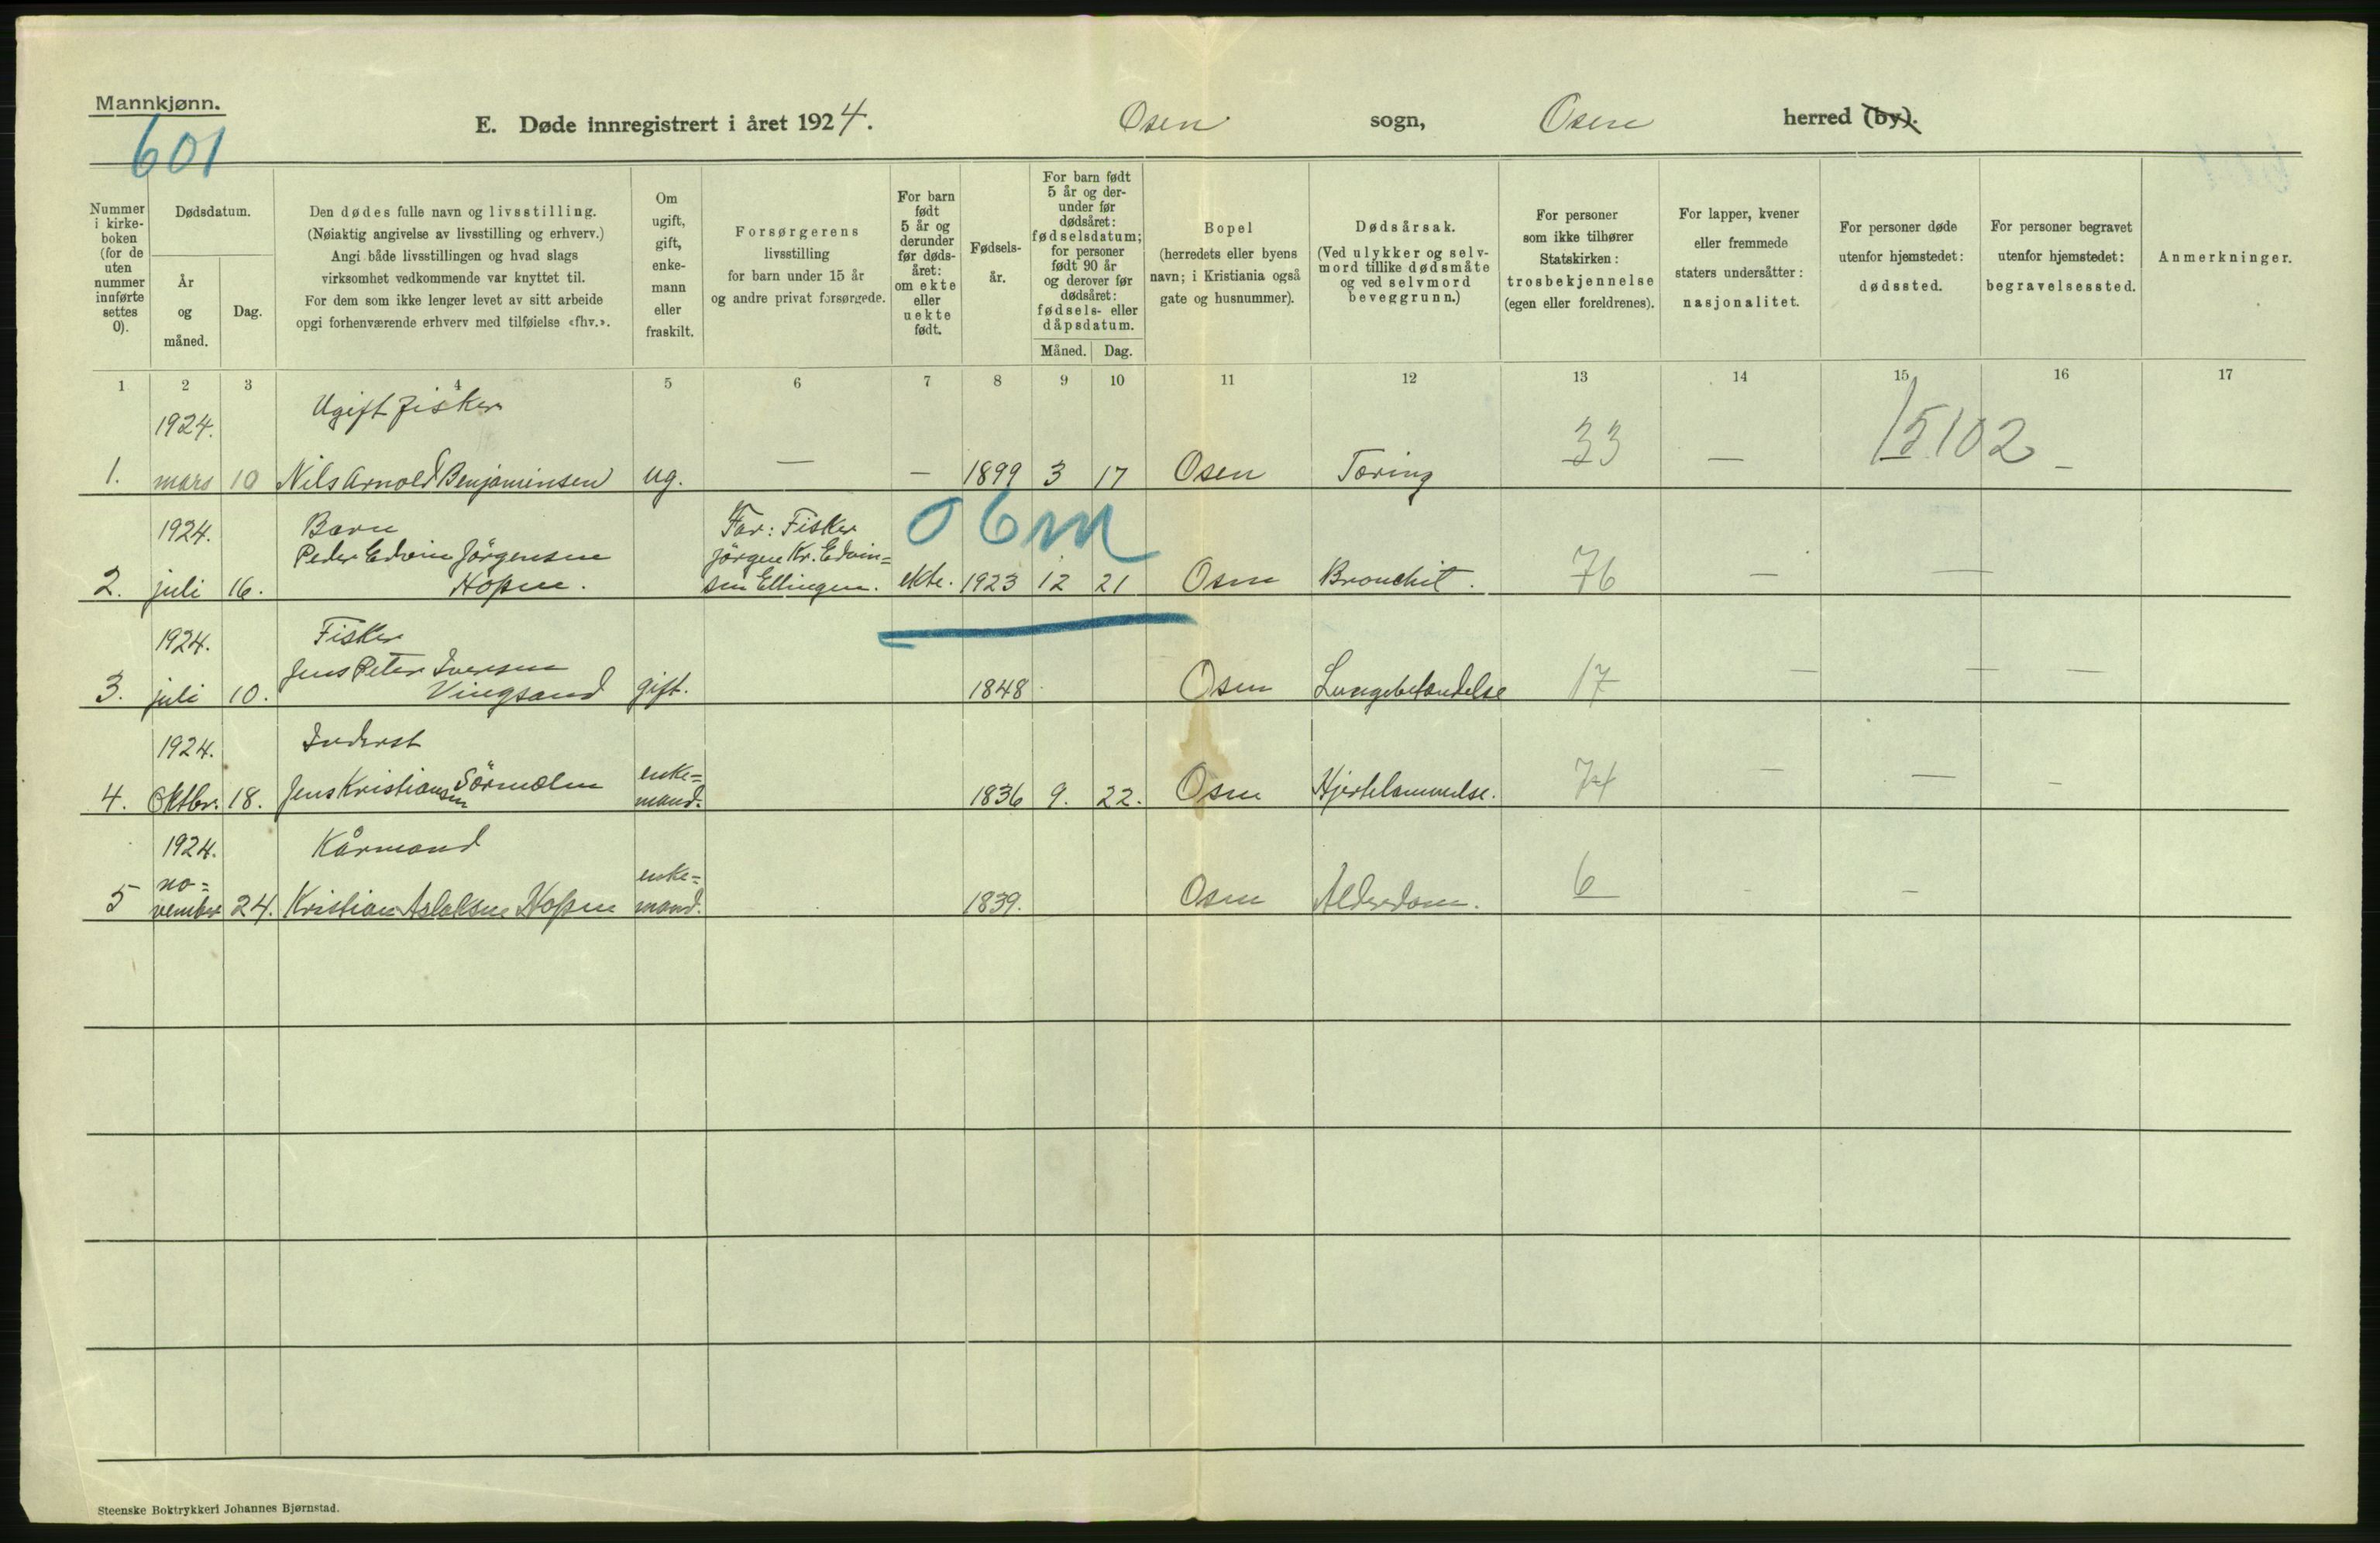 Mannkjønn.
601
E. Døde innregistrert i året 1924.
Osen sogn, Osen herred (by).
Nummer i kirke-boken (for de uten nummer innførte settes 0).
Dødsdatum.
År og måned.
Dag.
Den dødes fulle navn og livsstilling.
(Nøiaktig angivelse av livsstilling og erhverv.)
Angi både livsstillingen og hvad slags
virksomhet vedkommende var knyttet til.
For dem som ikke lenger levet av sitt arbeide
opgi forhenværende erhverv med tilføielse «fhv.».
Om ugift, gift, enke-mann eller fraskilt.
Forsørgerens
livsstilling
for barn under 15 år
og andre privat forsørgede.
For barn født 5 år og derunder før døds-året: om ekte eller uekte født.
Fødsels-år.
For barn født 5 år og der-under før dødsåret: fødselsdatum; for personer født 90 år og derover før dødsåret: fødsels- eller dåpsdatum.
Måned. Dag.
Bopel
(herredets eller byens
navn; i Kristiania også
gate og husnummer).
Dødsårsak.
(Ved ulykker og selv-
mord tillike dødsmåte
og ved selvmord
beveggrunn.)
For personer
som ikke tilhører
Statskirken:
trosbekjennelse
(egen eller foreldrenes).
For lapper, kvener
eller fremmede
staters undersåtter:
nasjonalitet.
For personer døde
utenfor hjemstedet:
dødssted.
For personer begravet
utenfor hjemstedet:
begravelsessted.
Anmerkninger.
1 2 3 4 5 6 7 8 9 10 11 12 13 14 15 16 17
1924. Ugift fisker
1. mars 10 Nils Arnold Benjaminsen ug. — — 1899 3 17 Osen Tæring 33 — 15102 —
1924. Barn Far: Fisker obm
Peder Edvin Jörgensen Jörgen Kr. Edvin=
2. juli 16. Hopen. sen Ellingen. ekte. 1923 12 21 Osen Bronchit. 76 — —
1924. Fisker
Jens Peter Iversen
3. juli 10. Vingsand gift. 1848 Osen Lungebetændelse 17 — — —
1924. Inderst
enke=
4. Oktbr. 18. Jens Kristiansen Sörmelen mand. 1836 9. 22. Osen Hjertelammelse. 74 — — —
1924. Kårmand
no= enke=
5 vember 24. Kristian Aslaksen Hopen mand. 1839. Osen Alderdom. 6 - –
Steenske Boktrykkeri Johannes Bjørnstad.